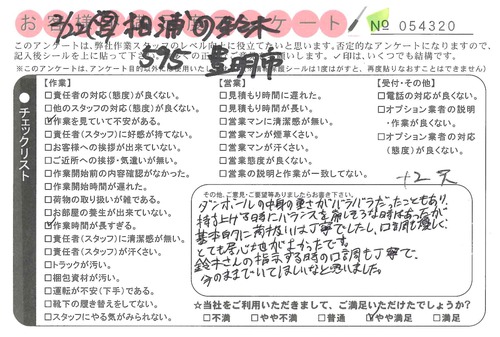 お客様アンケート
No 054320
このアンケートは、弊社作業スタッフのレベル向上に役立てたいと思います。否定的なアンケートになりますので、
※このアンケートは、アンケート目的以外には使用いたし
相浦の鈴木
575 豊明市
チェックリスト
【作業】
□責任者の対応(態度)が良くない。
□他のスタッフの対応(態度)が良くない。
☑作業を見ていて不安がある。
□責任者(スタッフ)に好感が持てない。
□お客様への挨拶が出来ていない。
□ご近所への挨拶・気遣いが無い。
□作業開始前の内容確認がなかった。
□作業開始時間が遅れた。
□荷物の取り扱いが雑である。
□お部屋の養生が出来ていない。
☑作業時間が長すぎる。
□責任者(スタッフ)に清潔感が無い。
□責任者(スタッフ)が汗くさい。
□トラックが汚い。
□梱包資材が汚い。
□運転が不安(下手)である。
□靴下の履き替えをしてない。
□スタッフにやる気がみられない。
【営業】
□見積もり時間に遅れた。
□見積もり時間が長い。
□営業マンに清潔感が無い。
□営業マンが煙草くさい。
□営業マンが汗くさい。
□営業態度が良くない。
□営業の説明と作業が一致してない。
【受付・その他】
□電話の対応が良くない。
□オプション業者の説明
・作業が良くない。
□オプション業者の対応
(態度)が良くない。
その他、ご意見・ご要望等ありましたらお書き下さい。
ダンボールの中身の重さがバラバラだったこともあり、
持ち上げる時にバランスを崩しそうな時はあったが
基本的に荷物扱いは丁寧でしたし、口調も優しく、
とても居心地がよかったです。
鈴木さんの指示する時の口調も丁寧で、
今のままでいてほしいなと思いました。
☆当社をご利用いただきまして、ご満足いただけたでしょうか?
□不満 □やや不満 □普通 ☑やや満足 □満足